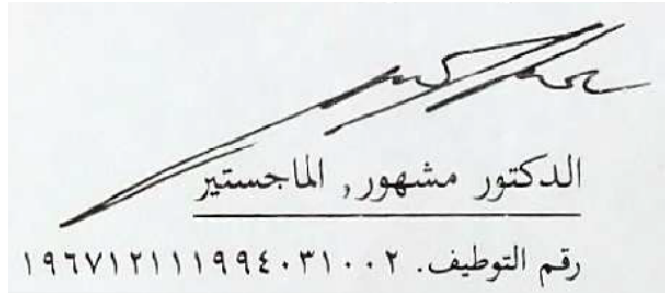 الدكتور مشهور, الماجستير
رقم التوطيف. ١٩٦٧١٢١١١٩٩٤٠٣١٠٠٢